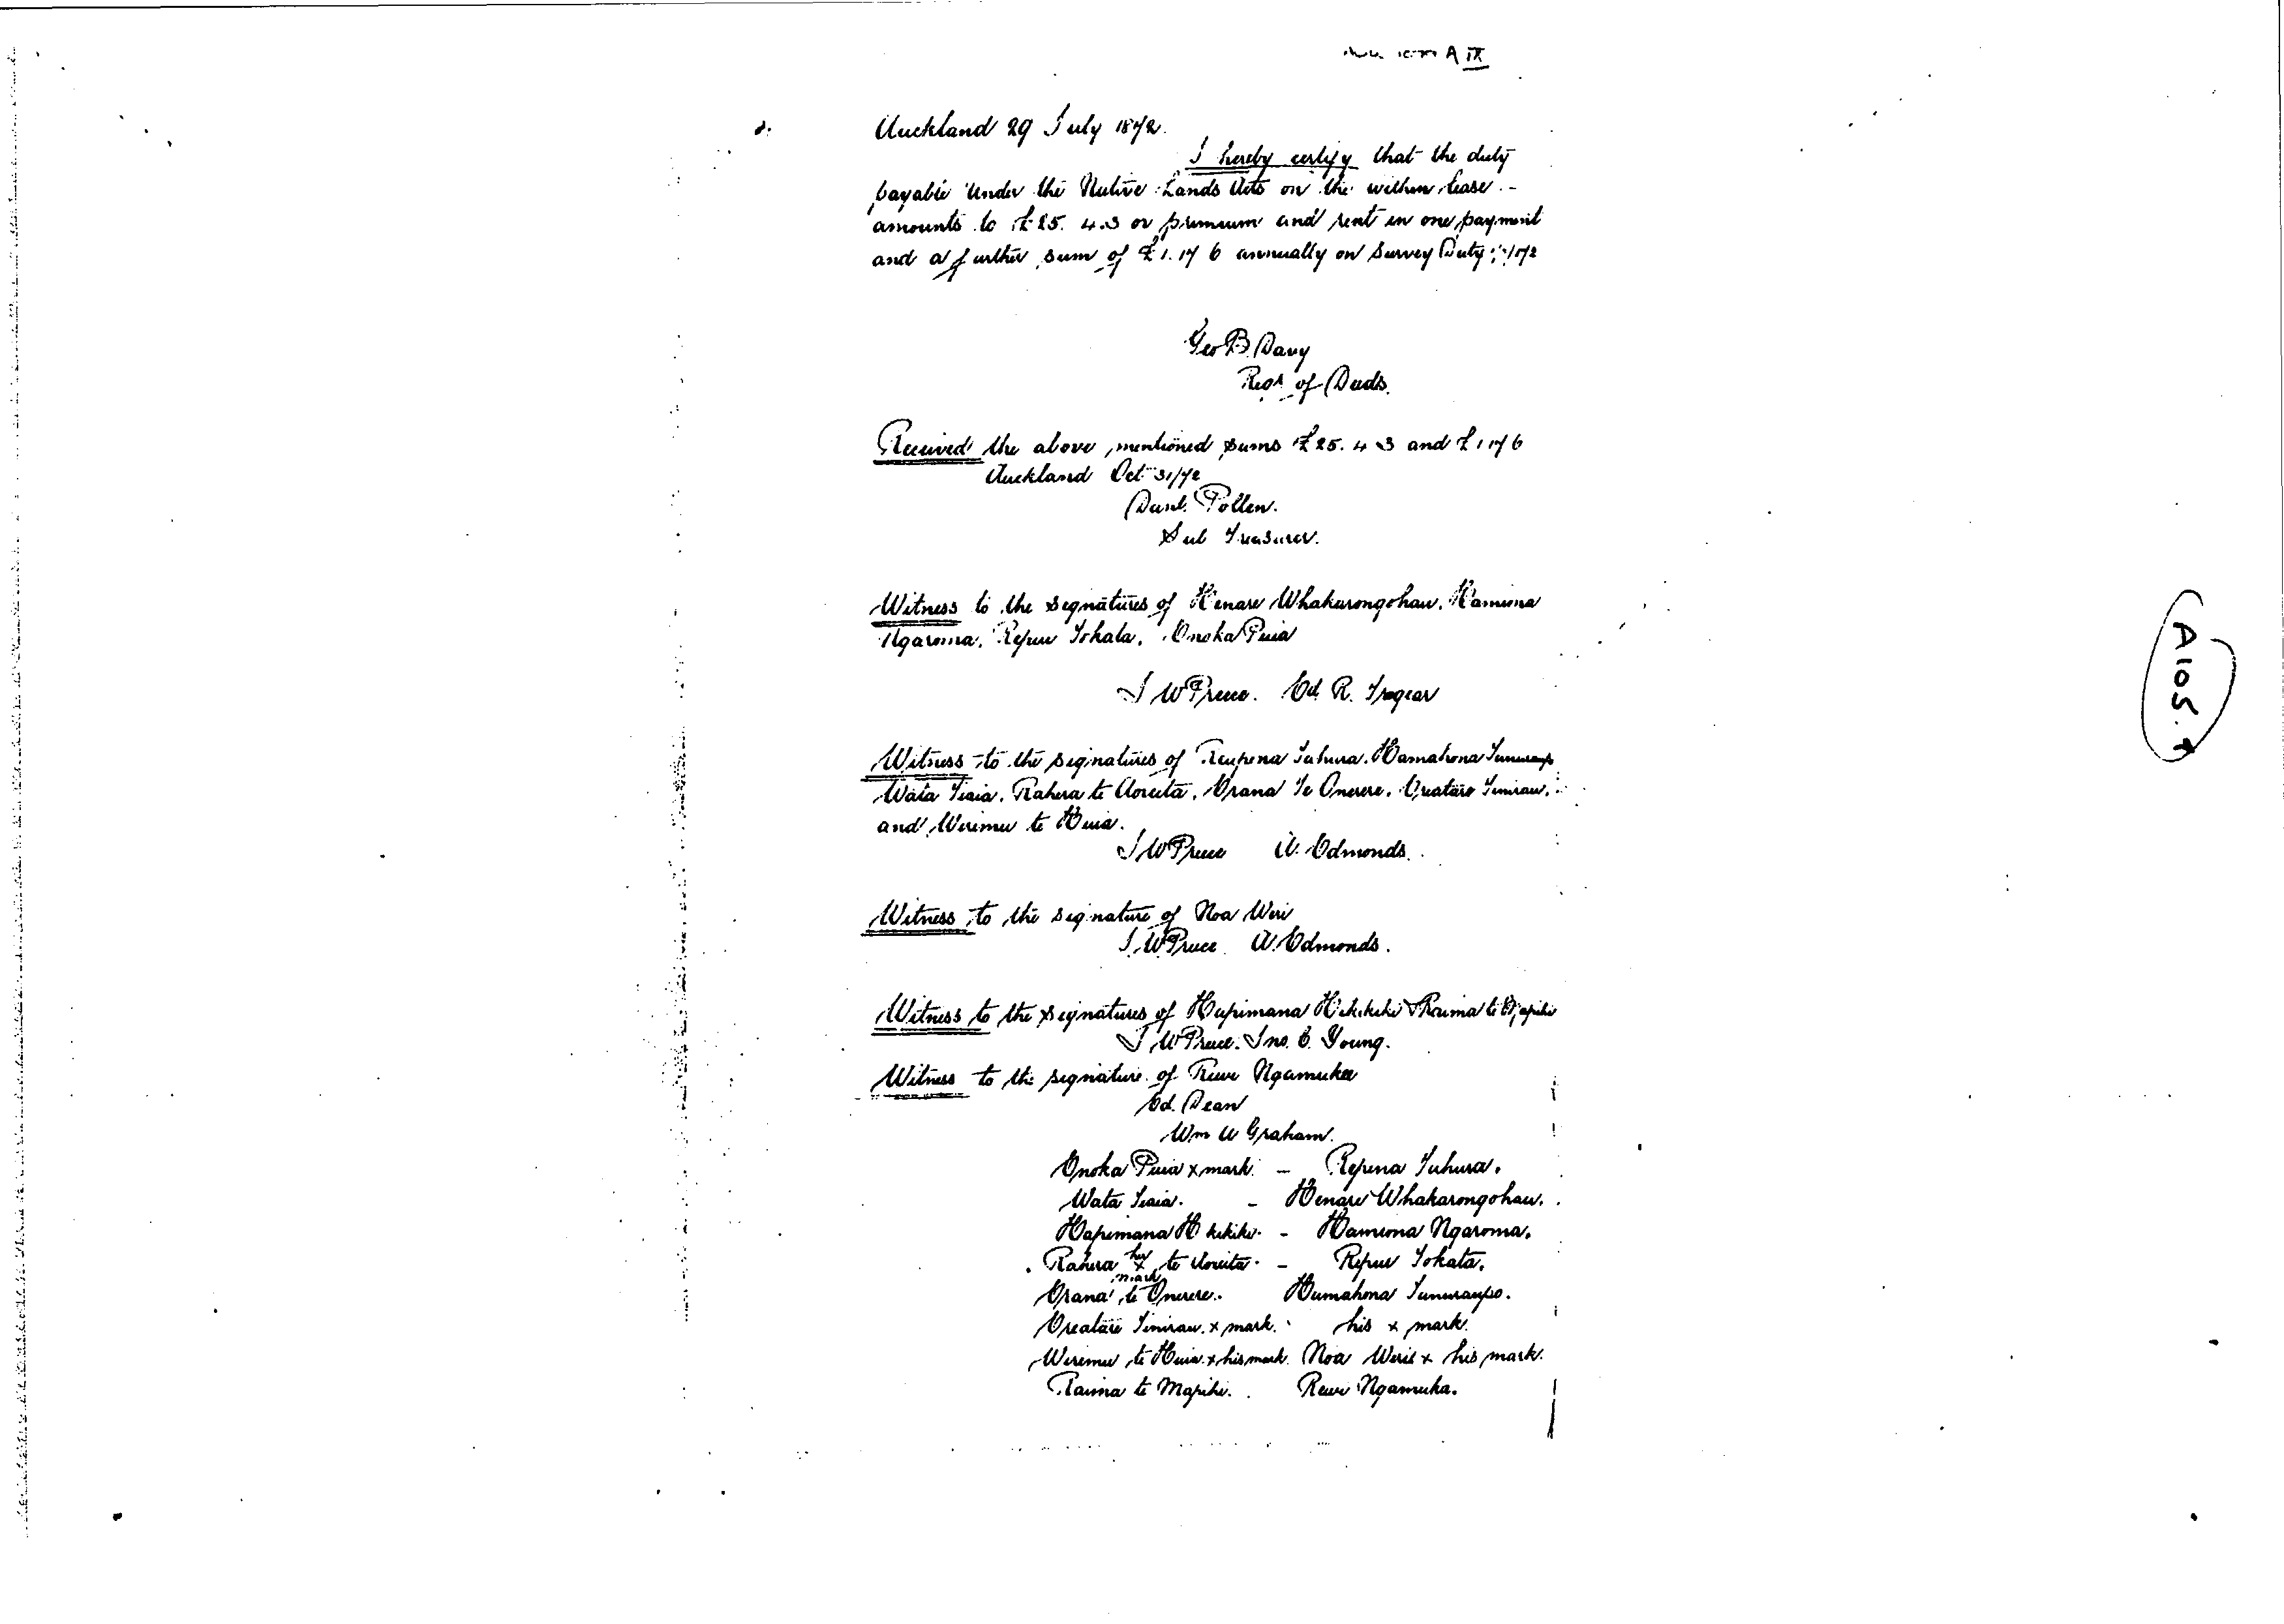 A IX
Auckland 29 July 1872.
I hereby certify that the duty
payable under the Native Lands Acts on the within lease. -
amounts to £25. 4.3 on premium and rent in one payment
and a further sum of £1. 17 6 annually on Survey Duty
Geo B. Davy
Regr of Deeds.
Received the above mentioned sums £25. 4 3 and £1 17 6
Auckland Oct 31/72
Danl. Pollen.
Sub Treasurer.
Witness to the signatures of Henare Whakarongohau. Hamiona
Ngaroma. Repu Tokata. Onoka Puia
J W Preece. Ed. R. Tregear
Witness to the signatures of Reupena Tuhura. Hamahona
Wata Tiaia. Rahera te Aoreita. Orana Te Onerere. Oreatare Tinirau.
and Wiremu te Huia.
J W Preece A. Edmonds.
Witness to the signature of Noa Weri
J. W Preece A. Edmonds.
Witness to the signatures of Hapimana & Raima te
J W Preece. Jno. C. Young.
Witness to the signature of Rewi Ngamuka
Ed. Dean
Wm A Graham.
Onoka Puia x mark. - Repena Tuhura.
Wata Tiaia. - Henare Whakarongohau.
Hapimana H kikiki. - Hamiona Ngaroma.
Rahera her x mark te Aoreita. - Repu Tokata.
Orana te Onerere. Humahona
Oreatare Tinirau. x mark. his x mark.
Wiremu te Huia. x his mark. Noa Weri x his mark.
Raima te Mapihi. Rewi Ngamuka.
A105.